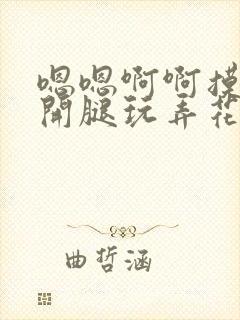 嗯嗯啊啊摸
開腿玩弄花
曲哲涵